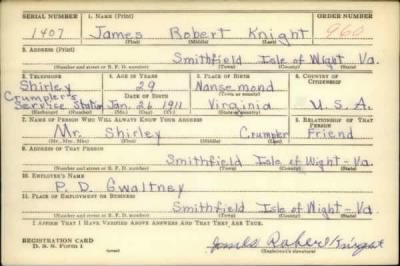 SERIAL NUMBER 1. NAME (Print) ORDER NUMBER
1407 James Robert Knight 960
(First) (Middle) (Last)
2. ADDRESS (Print)
Smithfield Isle of Wight Va.
(Number and street or R. F. D. number) (Town) (County) (State)
3. TELEPHONE 4. AGE IN YEARS 5. PLACE OF BIRTH 6. COUNTRY OF CITIZENSHIP
Shirley 29 Nansemond
Crumpler's DATE OF BIRTH
Service Station Jan. 26 1911 Virginia U.S.A.
(Exchange) (Number) (Mo.) (Day) (Yr.) (State or country)
7. NAME OF PERSON WHO WILL ALWAYS KNOW YOUR ADDRESS 8. RELATIONSHIP OF THAT PERSON
Mr. Shirley Crumpler Friend
(Mr., Mrs., Miss) (First) (Middle) (Last)
9. ADDRESS OF THAT PERSON
Smithfield Isle of Wight - Va.
(Number and street or R. F. D. number) (Town) (County) (State)
10. EMPLOYER'S NAME
P. D. Gwaltney
11. PLACE OF EMPLOYMENT OR BUSINESS
Smithfield Isle of Wight - Va.
(Number and street or R. F. D. number) (Town) (County) (State)
I AFFIRM THAT I HAVE VERIFIED ABOVE ANSWERS AND THAT THEY ARE TRUE.
REGISTRATION CARD
D. S. S. Form 1 James Robert Knight
(Registrant's signature)